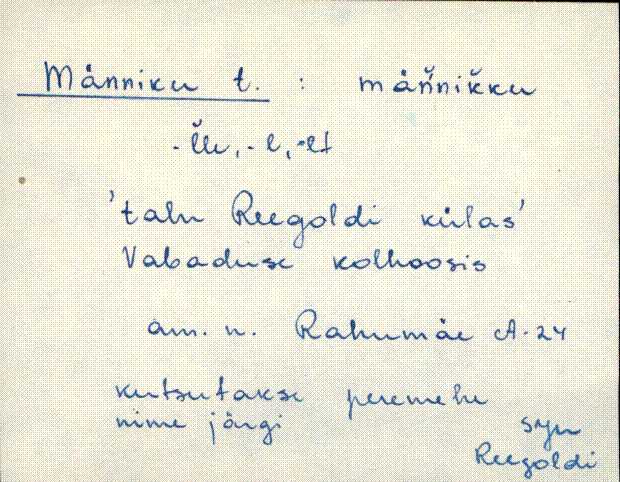 Männiku t. : mäňnik̆ku
-l̆le, -l, -lt
'talu Reegoldi külas'
Vabaduse kolhoosis
am. n. Rahumäe A-24
kutsutakse peremehe
nime järgi syn
Reegoldi